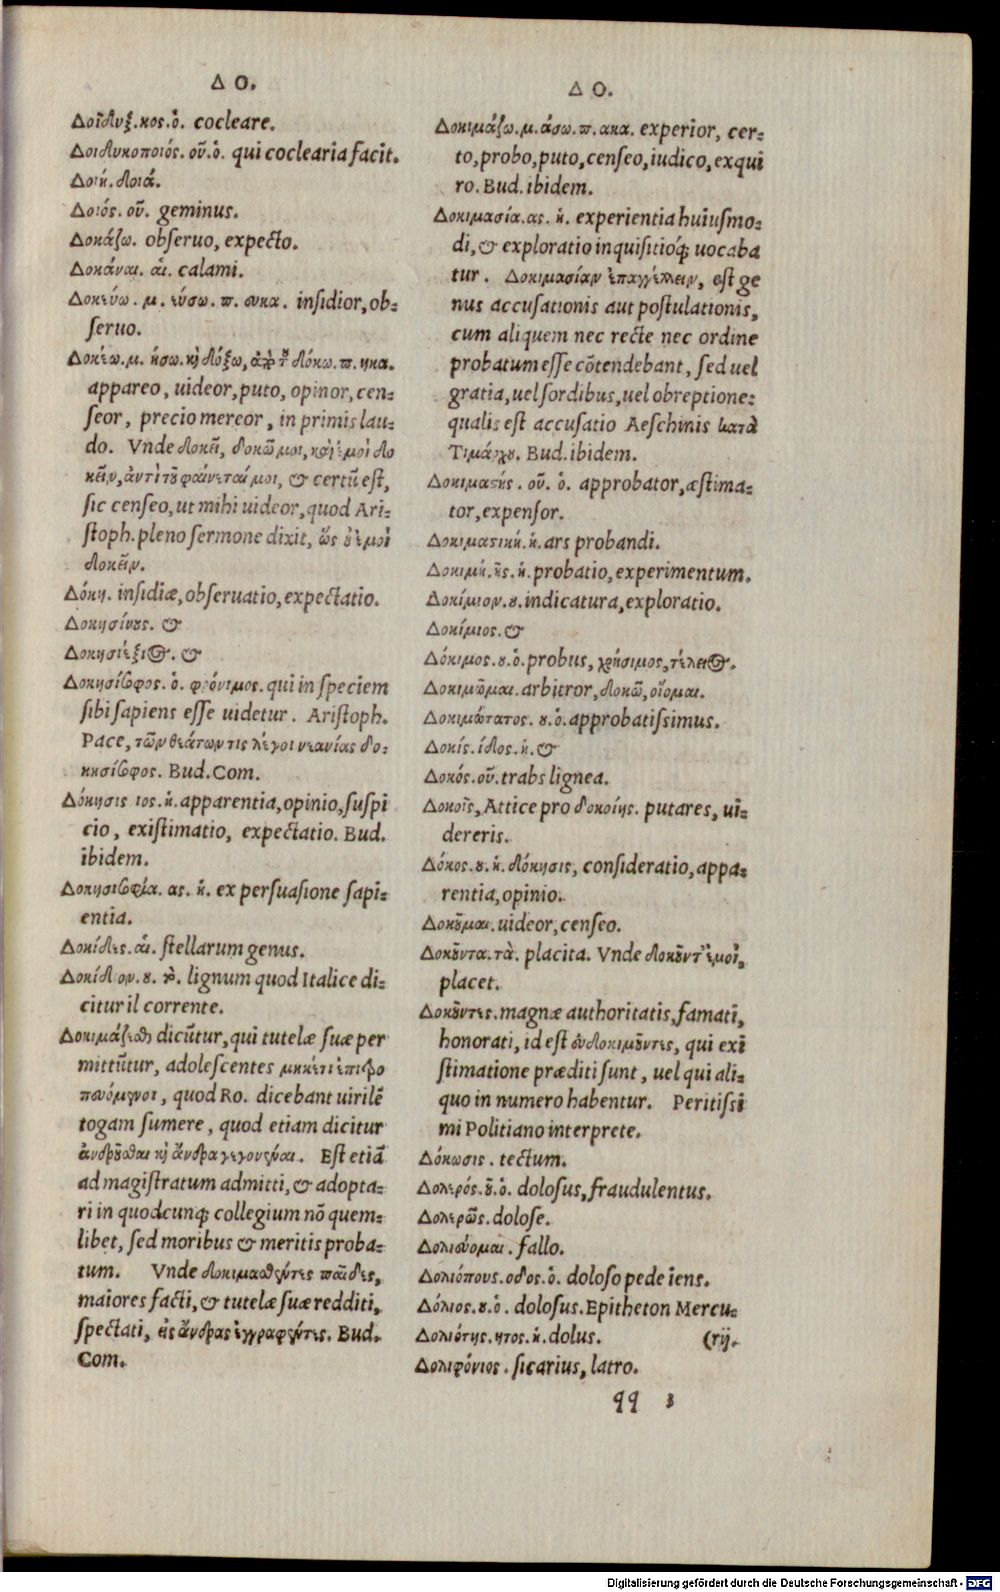 Δ Ο.
Δοῖδυξ.κος.ὁ. cocleare.
Δοιδυκοποιός.οῦ.ὁ. qui coclearia facit.
Δοιή.δοιά.
Δοιός.οῦ. geminus.
Δοκάζω. obſeruo, expecto.
Δοκάναι.αἱ. calami.
Δοκεύω.μ.εύσω.π.ευκα. inſidior, ob-
ſeruo.
Δοκέω.μ.ήσω.καὶ δόξω, ἀπὸ τοῦ δόκω.π.ηκα.
appareo, uideor, puto, opinor, cen-
ſeor, precio mereor, in primis lau-
do. Vnde δοκεῖ, δοκῶ μοι, καὶ ἐμοὶ δο
κεῖν, ἀντὶ τοῦ φαίνεταί μοι, & certũ eſt,
ſic cenſeo, ut mihi uideor, quod Ari-
ſtoph. pleno ſermone dixit, ὥς γ᾽ ἐμοὶ
δοκεῖν.
Δόκη. inſidiæ, obſeruatio, expectatio.
Δοκησίνους. &
Δοκησιδέξιος. &
Δοκησίσοφος.ὁ. φρόνιμος. qui in ſpeciem
ſibi ſapiens eſſe uidetur. Ariſtoph.
Pace, τῶν θεάτων τις λέγοι νεανίας δο-
κησίσοφος. Bud. Com.
Δόκησις ιος.ἡ. apparentia, opinio, ſuſpi
cio, exiſtimatio, expectatio. Bud.
ibidem.
Δοκησισοφία.ας.ἡ. ex perſuaſione ſapi-
entia.
Δοκίδες.αἱ. ſtellarum genus.
Δοκίδιον.ου.τὸ. lignum quod Italice di-
citur il corrente.
Δοκιμάζεσθαι dicũtur, qui tutelæ ſuæ per
mittũtur, adoleſcentes μηκέτι ἐπιτρο
πευόμενοι, quod Ro. dicebant uirilẽ
togam ſumere, quod etiam dicitur
ἀνδροῦσθαι καὶ ἄνδρα γεγονέναι. Eſt etiã
ad magiſtratum admitti, & adopta-
ri in quodcunq; collegium nõ quem-
libet, ſed moribus & meritis proba-
tum. Vnde δοκιμασθέντες παῖδες,
maiores facti, & tutelæ ſuæ redditi,
ſpectati, εἰς ἄνδρας ἐγγραφέντες. Bud.
Com.
Δ Ο.
Δοκιμάζω.μ.άσω.π.ακα. experior, cer-
to, probo, puto, cenſeo, iudico, exqui
ro. Bud. ibidem.
Δοκιμασία.ας.ἡ. experientia huiuſmo-
di, & exploratio inquiſitióq; uocaba
tur. Δοκιμασίαν ἐπαγγέλλειν, eſt ge
nus accuſationis aut poſtulationis,
cum aliquem nec recte nec ordine
probatum eſſe cõtendebant, ſed uel
gratia, uel ſordibus, uel obreptione-
qualis eſt accuſatio Aeſchinis κατὰ
Τιμάρχου. Bud. ibidem.
Δοκιμαστής.οῦ.ὁ. approbator, æſtima-
tor, expenſor.
Δοκιμαστική.ἡ. ars probandi.
Δοκιμή.ῆς.ἡ. probatio, experimentum.
Δοκίμιον.ου. indicatura, exploratio.
Δοκίμιος. &
Δόκιμος.ου.ὁ. probus, χρήσιμος, τέλειος.
Δοκιμῶμαι. arbitror, δοκῶ, οἴομαι.
Δοκιμώτατος.ου.ὁ. approbatiſſimus.
Δοκίς.ίδος.ἡ. &
Δοκός.οῦ. trabs lignea.
Δοκοῖς, Attice pro δοκοίης. putares, ui-
dereris.
Δόκος.ου.ἡ. δόκησις, conſideratio, appa-
rentia, opinio.
Δοκοῦμαι. uideor, cenſeo.
Δοκοῦντα.τὰ. placita. Vnde δοκοῦντ᾽ ἐμοὶ,
placet.
Δοκοῦντες. magnæ authoritatis, famati,
honorati, id eſt εὐδοκιμοῦντες, qui exi
ſtimatione præditi ſunt, uel qui ali-
quo in numero habentur. Peritiſſi
mi Politiano interprete.
Δόκωσις. tectum.
Δολερός.οῦ.ὁ. doloſus, fraudulentus.
Δολερῶς. doloſe.
Δολιεύομαι. fallo.
Δολιόπους.οδος.ὁ. doloſo pede iens.
Δόλιος.ου.ὁ. doloſus. Epitheton Mercu-
Δολιότης.ητος.ἡ. dolus. (rij.
Δολιφόνιος. ſicarius, latro.
qq 3
Digitalisierung gefördert durch die Deutsche Forschungsgemeinschaft - DFG